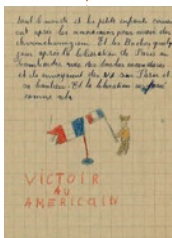 Tout le monde et les petits enfants
ont après les américains pour avoir des
chewing-gum. Et les Boches quelques
jours après la libération de Paris on
bombardés avec des bombes incendiaires
et ils envoyaient des sur Paris et
sa banlieue. Et la libération
comme cela
VICTOIR
AU
AMERICAIN